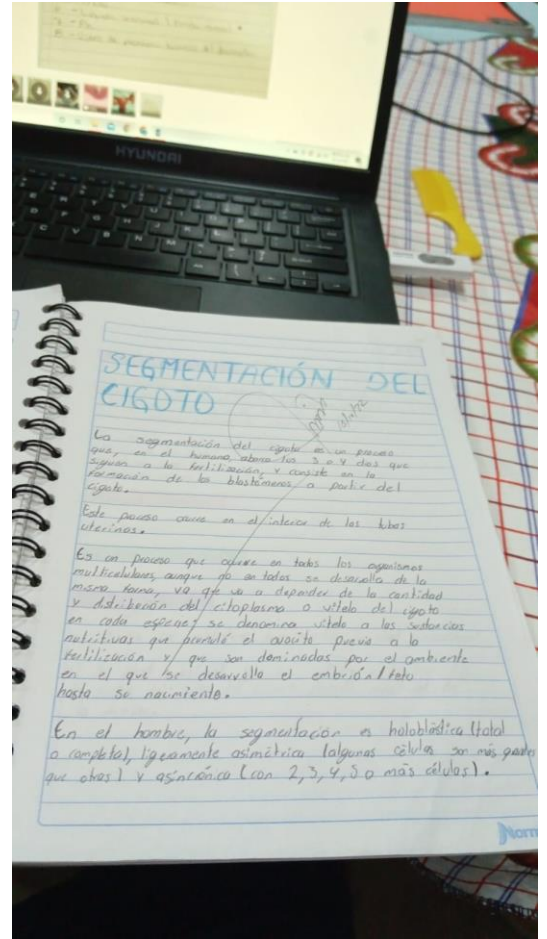 HYUNDAI
SEGMENTACIÓN DEL
CIGOTO
La segmentación del cigoto es un proceso
que, en el humano, abarca los 3 o 4 días que
siguen a la fertilización, y consiste en la
formación de los blastómeros, a partir del
cigoto.
Este proceso ocurre en el interior de las tubas
uterinas.
Es un proceso que ocurre en todos los organismos
multicelulares, aunque no en todos se desarolla de la
misma forma, ya que va a depender de la cantidad
y distribución del citoplasma o vitelo del cigoto
en cada especie; se denomina vitelo a las sustancias
nutritivas que acumuló el ovocito previo a la
fertilización y que son dominadas por el ambiente
en el que se desarrolla el embrión/feto
hasta su nacimiento.
En el hombre, la segmentación es holoblástica (total
o completa), ligeramente asimétrica (algunas células son más grandes
que otras) y asincrónica (con 2, 3, 4, 5 o más células).
Norm